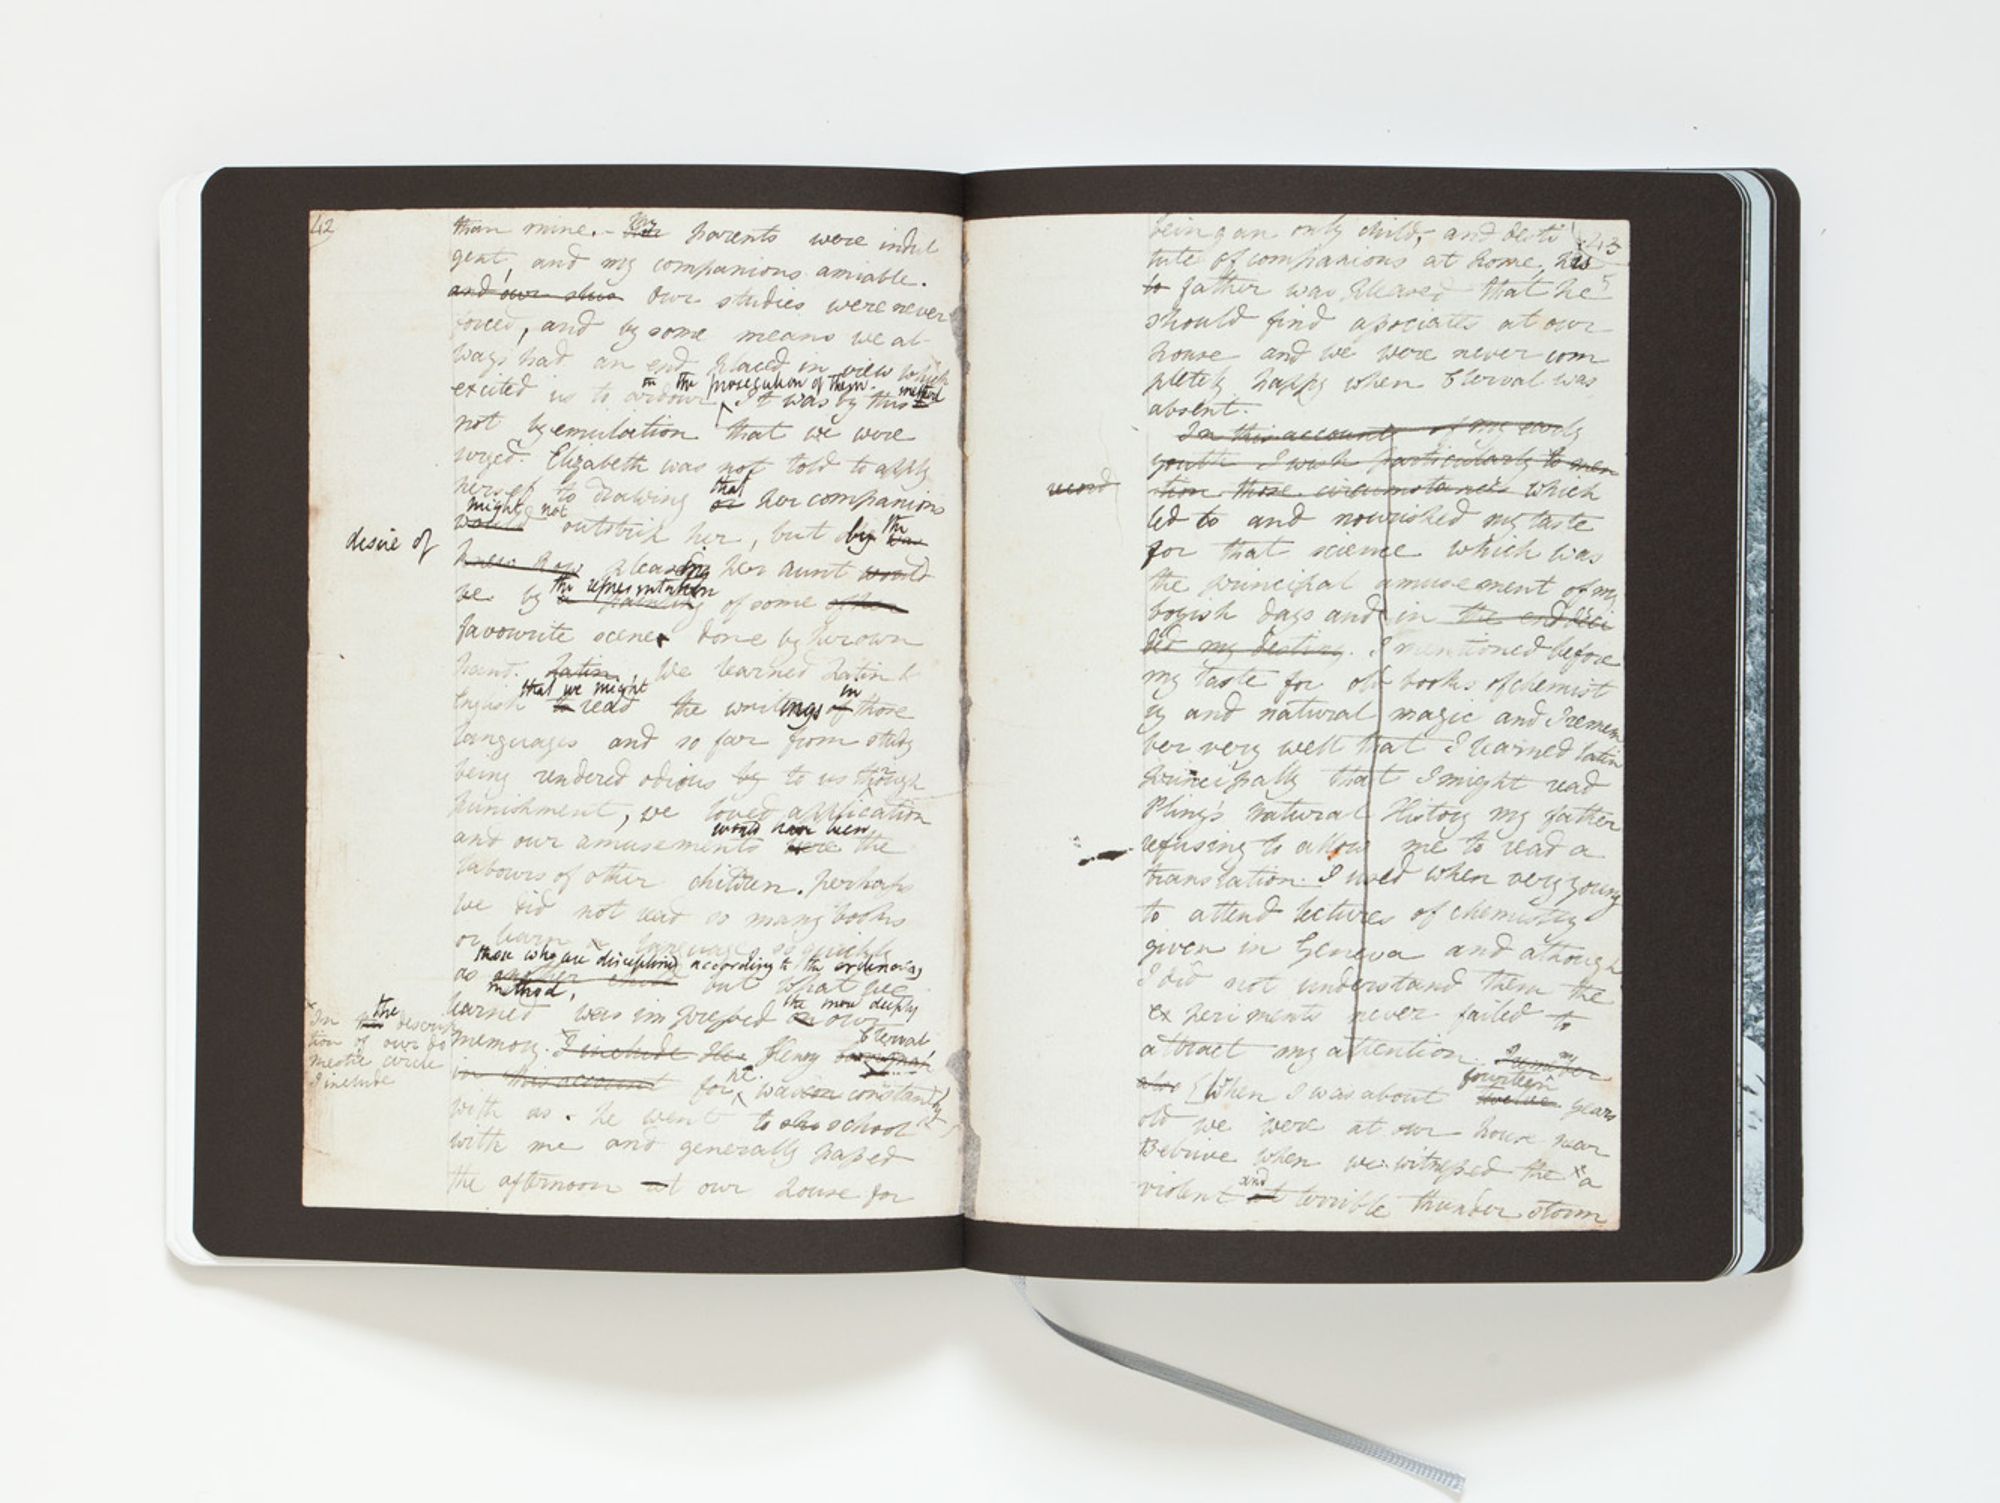 42
than mine. - My parents were indul
gent, and my companions amiable.
and our stu Our studies were never
forced, and by some means we al-
ways had an end placed in view which
excited us to ardour in the prosecution of them. It was by this method
not by emulation that we were
urged. Elizabeth was not told to apply
herself to drawing that or her companions
might not would outstrip her, but by the
desire of
knew how pleasing her aunt would
be by the representation a painting of some
favourite scenes done by her own
hand. Latin We learned Latin &
English that we might to read the writings in of those
languages and so far from study
being rendered odious by to us through
punishment, we loved application
and our amusements would have been were the
labours of other children. Perhaps
we did not read so many books
or learn languages so quickly
as those who are disciplined according to the ordinary
method, another child but what we
learned was impressed the more deeply on our
memory. I include Henry Clerval
In the descrip
tion of our do
mestic circle
I include
in this account for he was constantly
with us. he went to school
with me and generally passed
the afternoon at our house for
43
being an only child, and desti
tute of companions at home, his
father was pleased that he
should find associates at our
house and we were never com
pletely happy when Clerval was
absent.
In this account of my early
youth I wish particularly to men
tion those circumstances which
led to and nourished my taste
for that science which was
the principal amusement of my
boyish days and in the end deci
ded my destiny. I mentioned before
my taste for old books of chemist
ry and natural magic and I remem
ber very well that I learned Latin
principally that I might read
Pliny's Natural History my father
refusing to allow me to read a
translation. I used when very young
to attend lectures of chemistry
given in Geneva and although
I did not understand them the
experiments never failed to
attract my attention. I remember
also When I was about fourteen twelve years
old we were at our house near
Belrive when we witnessed the a
violent and terrible thunder storm